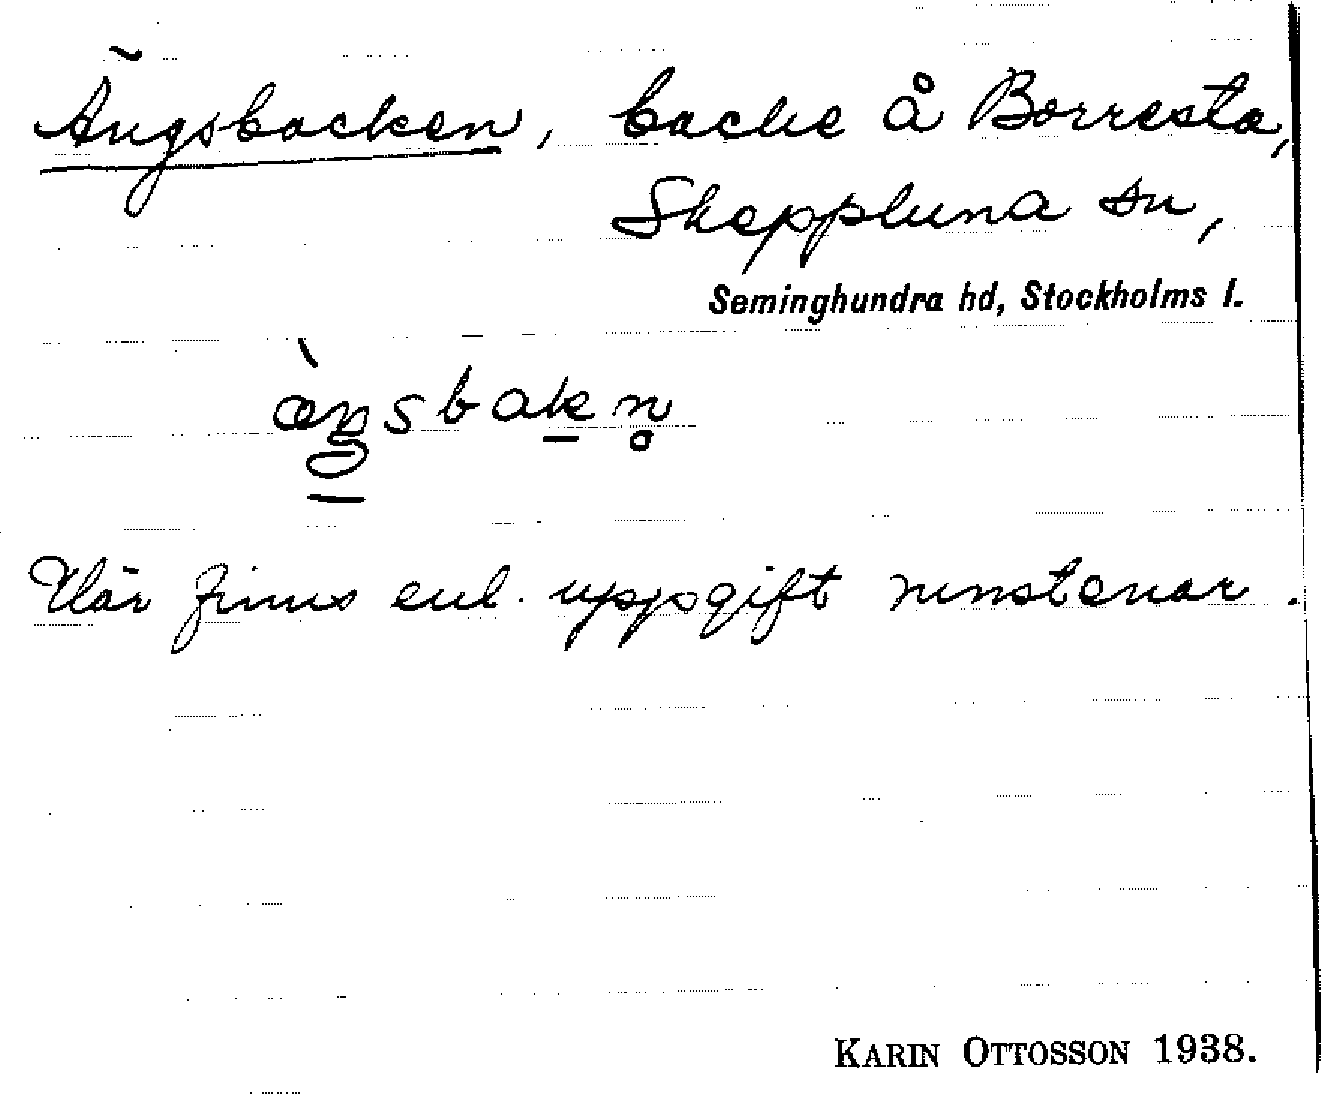 Ängsbacken, backe å Borresta,
Skepptuna sn,
Seminghundra hd, Stockholms l.
æ̀ŋsbakn̥
Här finns enl. uppgift runstenar.
KARIN OTTOSSON 1938.